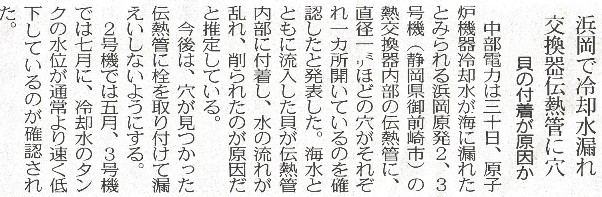 浜岡で冷却水漏れ
交換器伝熱管に穴
貝の付着が原因か
中部電力は三十日、原子
炉機器冷却水が海に漏れた
とみられる浜岡原発2、3
号機（静岡県御前崎市）の
熱交換器内部の伝熱管に、
直径一㍉ほどの穴がそれぞ
れ一カ所開いているのを確
認したと発表した。海水と
ともに流入した貝が伝熱管
内部に付着し、水の流れが
乱れ、削られたのが原因だ
と推定している。
今後は、穴が見つかった
伝熱管に栓を取り付けて漏
えいしないようにする。
2号機では五月、3号機
では七月に、冷却水のタン
クの水位が通常より速く低
下しているのが確認され
た。